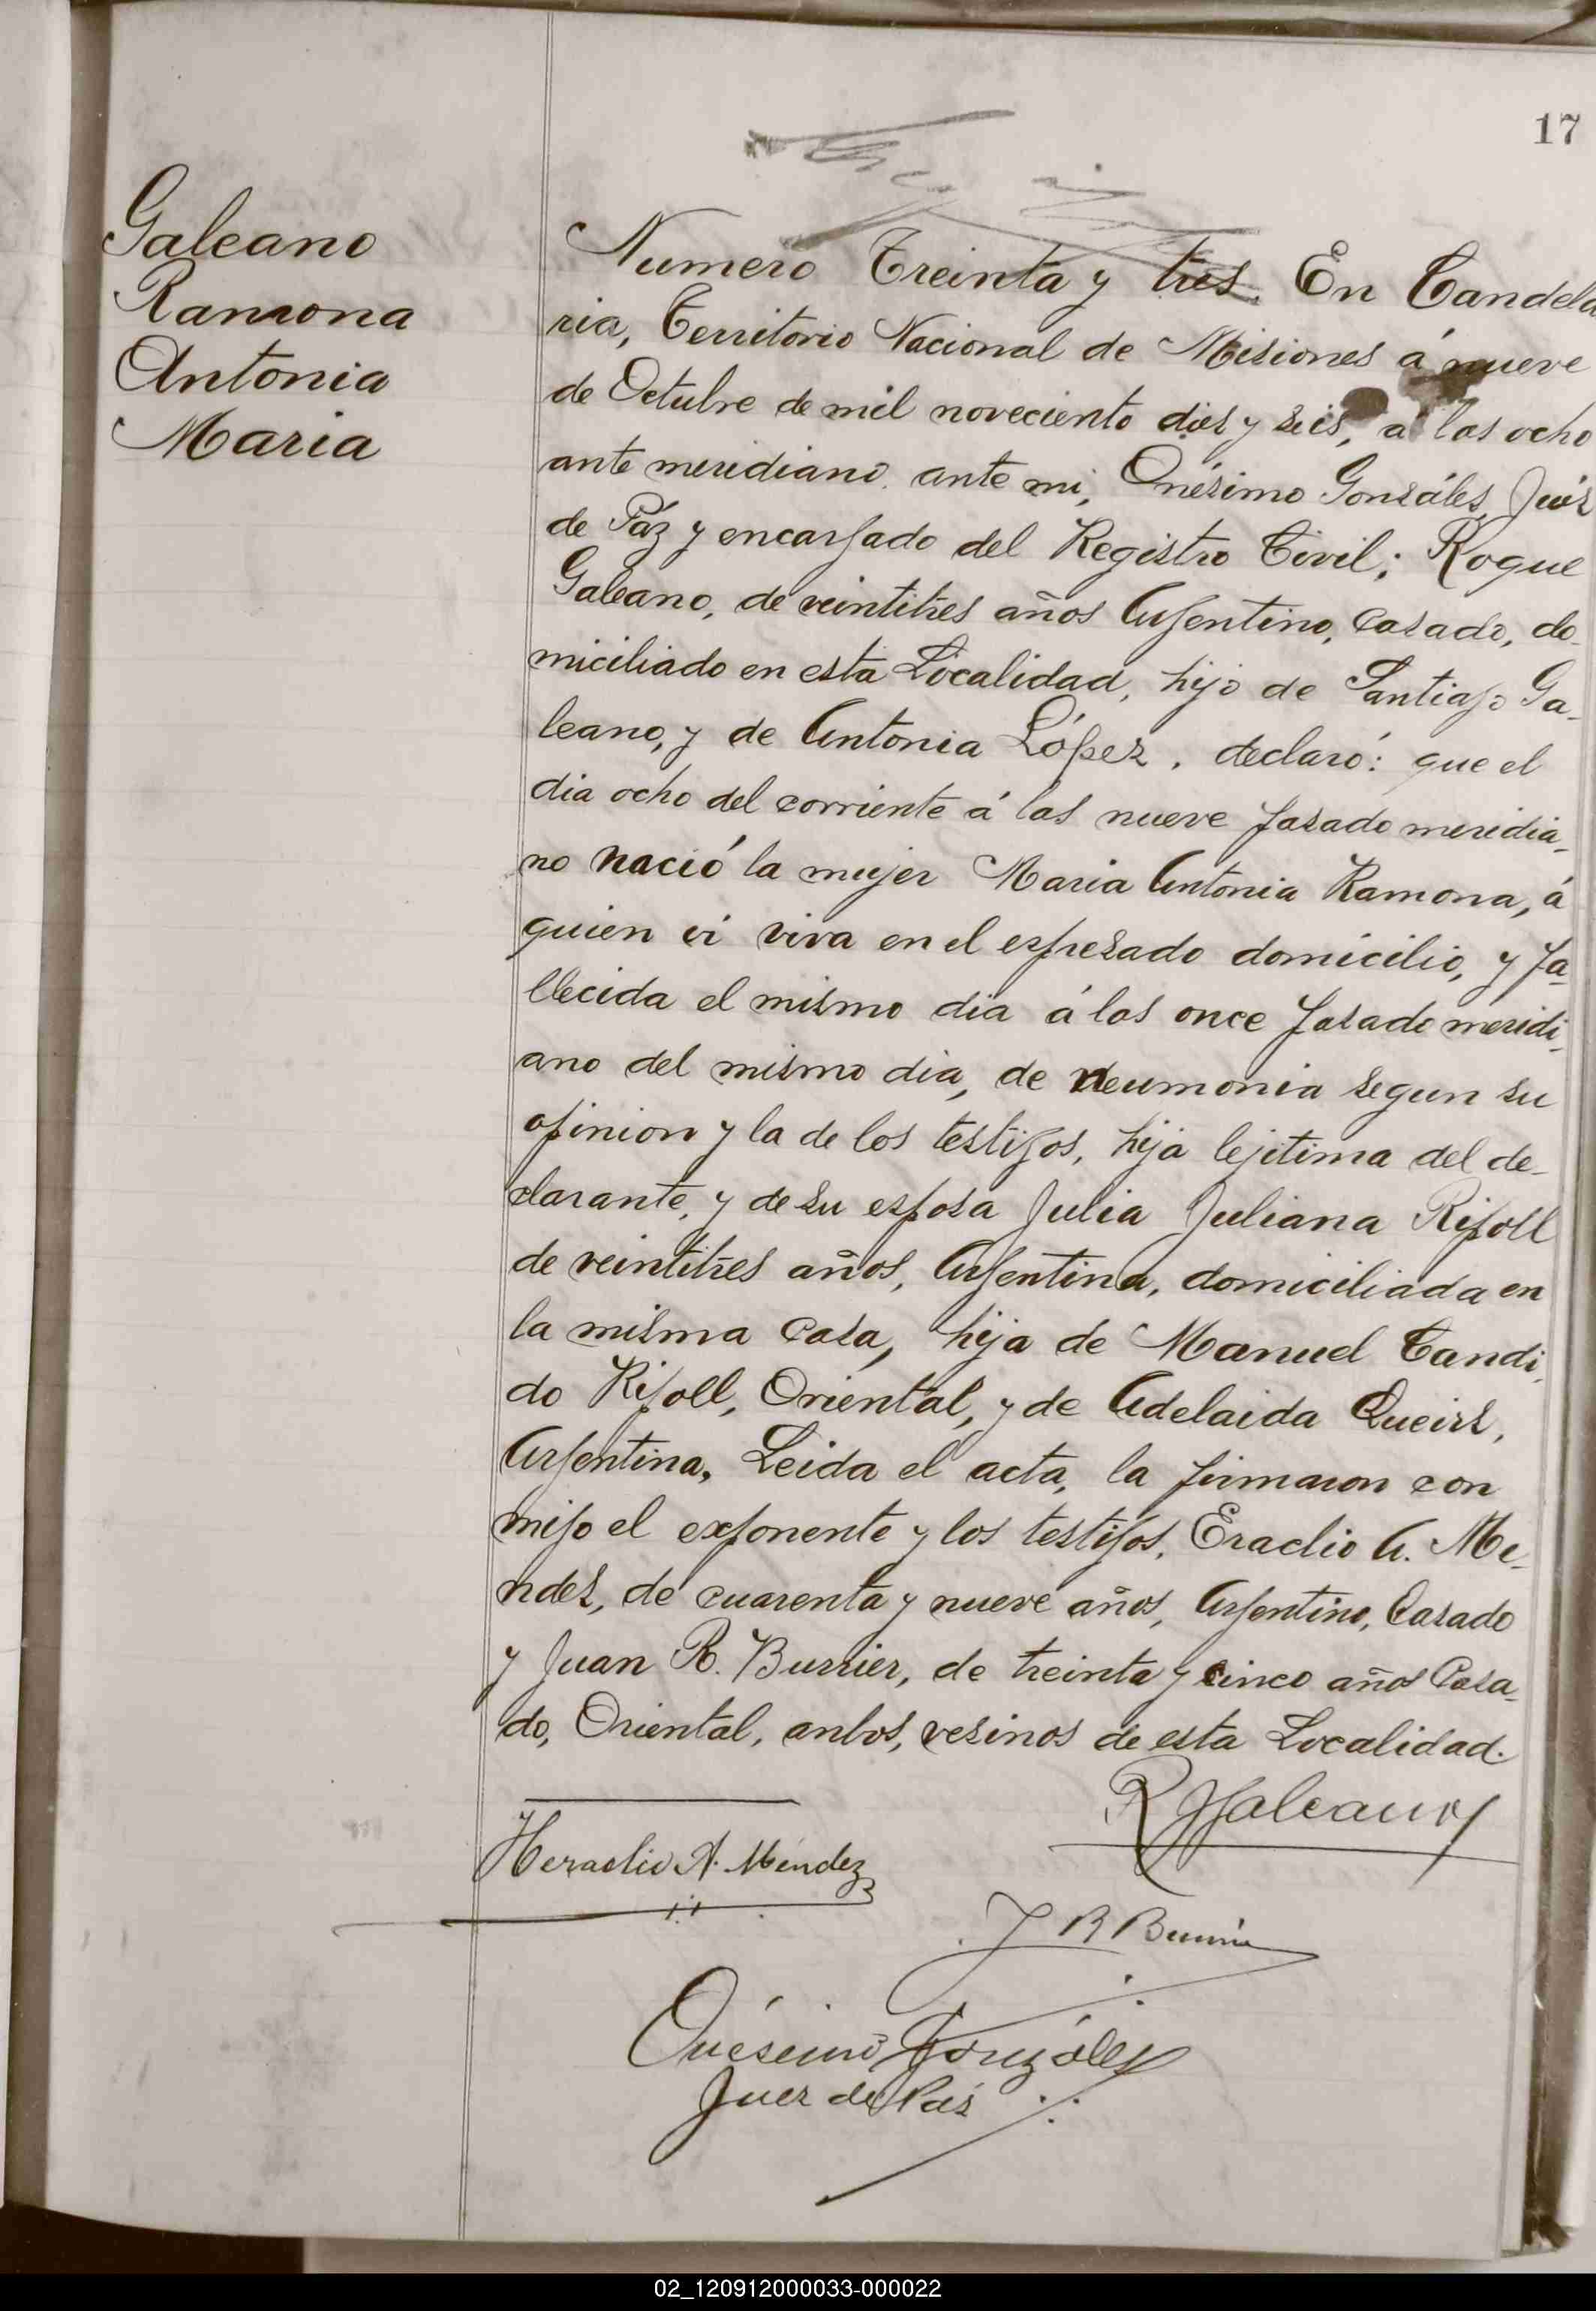 17
Galeano
Ramona
Antonia
Maria
Numero Treinta y tres. En Candela
ria, Territorio Nacional de Misiones á nueve
de Octubre de mil noveciento dies y seis, á las ocho
ante meridiano. ante mi, Onésimo Gonsáles, Juéz
de Páz y encargado del Registro Civil; Roque
Galeano, de veintitres años Argentino, Casado, do-
miciliado en esta Localidad, hijo de Santiago Ga-
leano, y de Antonia López, declaró: que el
dia ocho del corriente á las nueve pasado meridia-
no nació la mujer Maria Antonia Ramona, á
quien vi viva en el espresado domicilio, y fa-
llecida el mismo dia á las once pasado meridi-
ano del mismo dia, de neumonia segun su
opinion y la de los testigos, hija lejitima del de-
clarante, y de su esposa Julia Juliana Ripoll
de veintitres años, Argentina, domiciliada en
la misma Casa, hija de Manuel Candi-
do Ripoll, Oriental, y de Adelaida Queirs,
Argentina, Leida el acta, la firmaron con
migo el exponente y los testigos, Eraclio A. Me-
ndes, de cuarenta y nueve años, Argentino, Casado
y Juan R. Burrier, de treinta y cinco años Casa-
do, Oriental, anbos, vesinos de esta Localidad.
R Galeano
Heraclio A. Méndez
J R Burrié
Onésimo Gonzáles
Juez de Páz
02_120912000033-000022